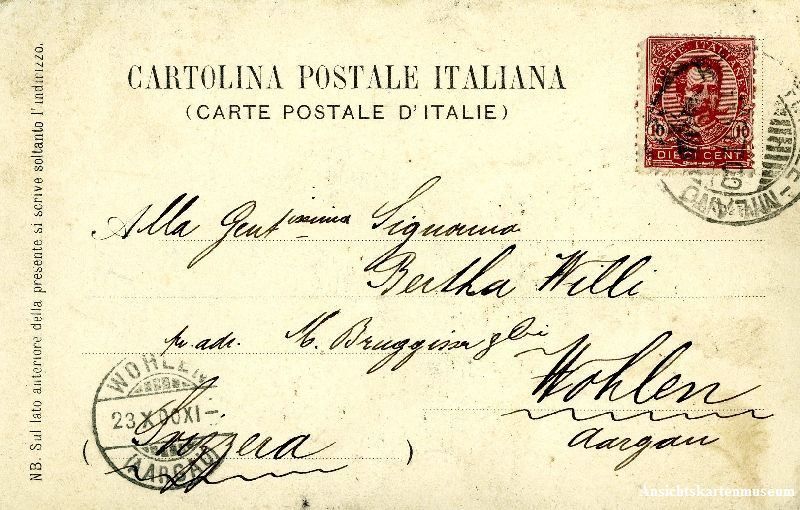 CARTOLINA POSTALE ITALIANA
(CARTE POSTALE D'ITALIE)
NB. Sul lato anteriore della presente si scrive soltanto l'indirizzo.
POSTE ITALIANE
10 10
DIECI CENT
MILANO
Alla Gentissima Signorina
Bertha Willi
pr. adr. M. Bruggisser
Wohlen
Aargau
(Svizzera)
WOHLEN
23.X.00.XI-
(AARGAU)
Ansichtskartenmuseum